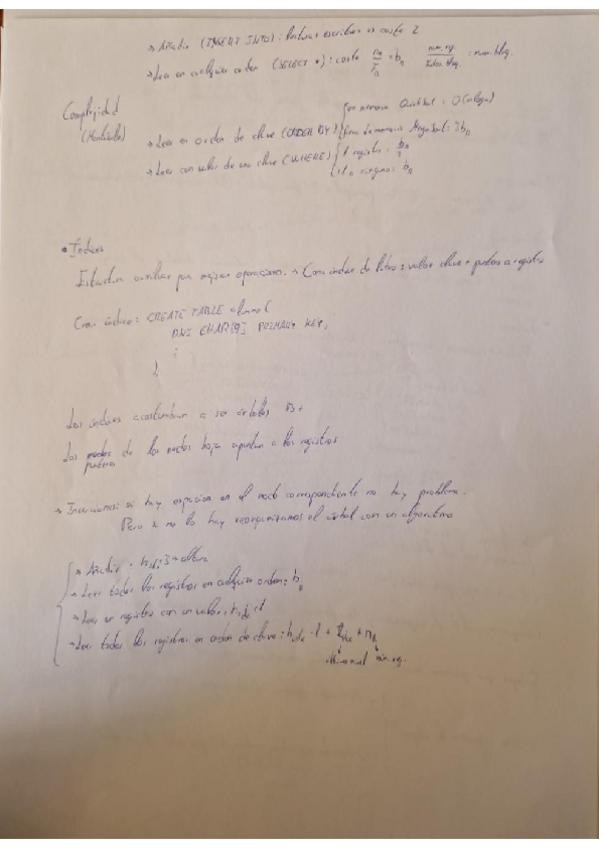 → Añadir (INSERT INTO): leer y escribir es coste 2
→ Leer en cualquier orden (SELECT *): coste n_R / f_R = b_R   num. reg. / bloq. : num. bloq.
Complejidad
(Montículo)
en memoria QuickSort: O(n log n)
→ Leer en orden de clave (ORDER BY) fuera de memoria MergeSort: b_R
→ Leer con valor de una clave (WHERE) 1 registro: b_R / 2
o ninguno: b_R
• Índices
Estructura auxiliar para mejorar operaciones. → Como índice de libro: valor clave + puntero a registro
Crear índice: CREATE TABLE alumno (
DNI CHAR[9] PRIMARY KEY,
⋮
)
Los índices acostumbran a ser árboles B+
Los nodos de los nodos hoja apuntan a los registros
punteros
→ Inserciones: si hay espacio en el nodo correspondiente no hay problema.
Pero si no lo hay reorganizamos el árbol con un algoritmo
→ Añadir: altura
→ Leer todos los registros en cualquier orden: b_R
→ Leer un registro con un valor:
→ Leer todos los registros en orden de clave:
num. reg.